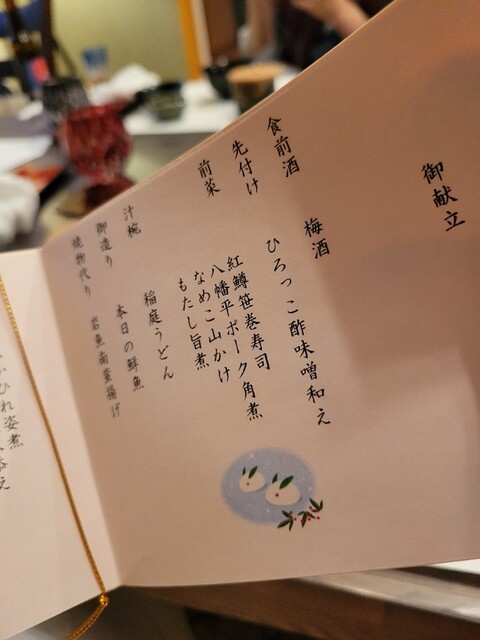 御献立
食前酒 梅酒
先付け ひろっこ酢味噌和え
前菜 紅鱒笹巻寿司
八幡平ポーク角煮
なめこ山かけ
もたし旨煮
汁椀 稲庭うどん
御造り 本日の鮮魚
焼物代り 岩魚南蛮揚げ
かひれ姿煮
添え